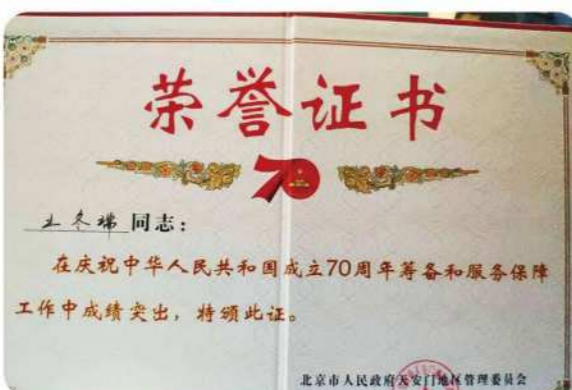 荣誉证书
70
王冬瑞 同志：
在庆祝中华人民共和国成立70周年筹备和服务保障
工作中成绩突出，特颁此证。
北京市人民政府天安门地区管理委员会